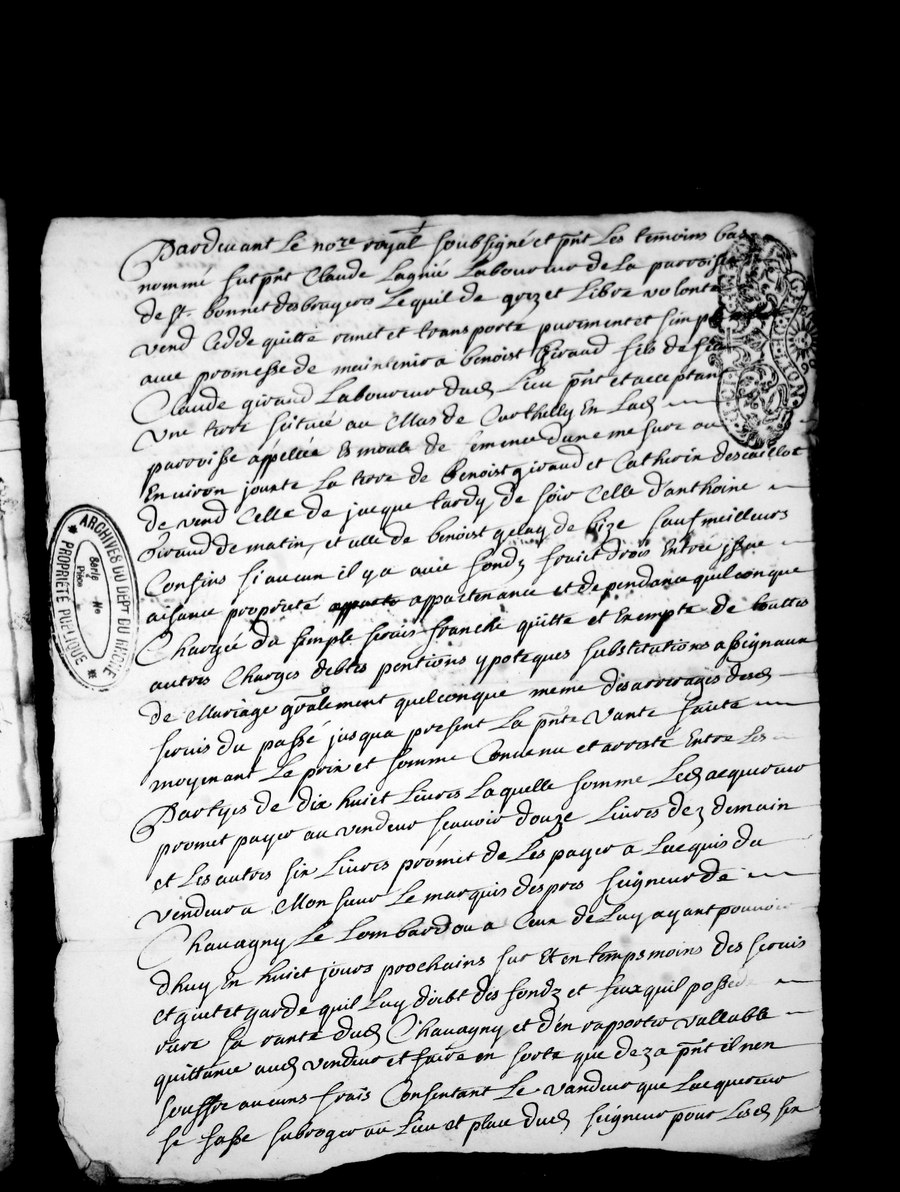 Pardevant Le no.re royal soubsigné et pnt Les temoins bas
nommé fut pnt Claude Lagnié Laboureur de La parroisse
de St. bonnet des bruyeres Lequil de grez et Libre volonte
vend Cedde quitte remet et transporte purement et simple
avec promesse de maintenir a benoist Giraud fils de feu
Claude giraud Laboureur dud Lieu pnt et acceptan
Une terre scituée au Mas de En Lad
parroisse appellée de semence dune mesure ou
Environ jouxte La terre de benoist giraud et Catherin descaillot
de vend Celle de jacque tardy de soir Celle d'anthoine
Giraud de matin, et celle de benoist gelay de bize sauf meilleurs
Confins si aucun il y a avec fondz fruict drois Entrée issue
aisance proprieté appartenance et dependance quelconque
Chargée du simple servis franche quitte et Exempte de touttes
autres Charges debtes pentions ypoteques substitutions assignaux
de Mariage gnralement quelconque meme des arrerages desd
servis du passé jusqua present La pnte vante faite
moyenant Le prix et somme Convenu et arresté Entre Les
Partyes de dix huict Livres Laquelle somme Led acquereur
promet payer au vendeur scavoir douze Livres dez demain
et Les autres six Livres promet de Les payer a Lacquis du
vendeur a Monsieur Le marquis despres seigneur de
Chavagny Le Lombard ou a Ceux de Luy ayant pouvoir
dhuy En huict jours prochains sur Et en temps moins des servis
et guet et garde quil Luy doibt des fondz et feux quil possede
riere sa rante dud Chavagny et d'en rapporter vallable
quittance aud vendeur et faire en sorte que dez a pnt il n'en
souffre aucuns frais Consentant Le vandeur que Lacquereur
se fasse subroger au Lieu et place dud seigneur pour Lesd six
ARCHIVES DU DEPT DU RHONE
PROPRIÉTÉ PUBLIQUE
Serie
No
Pièce